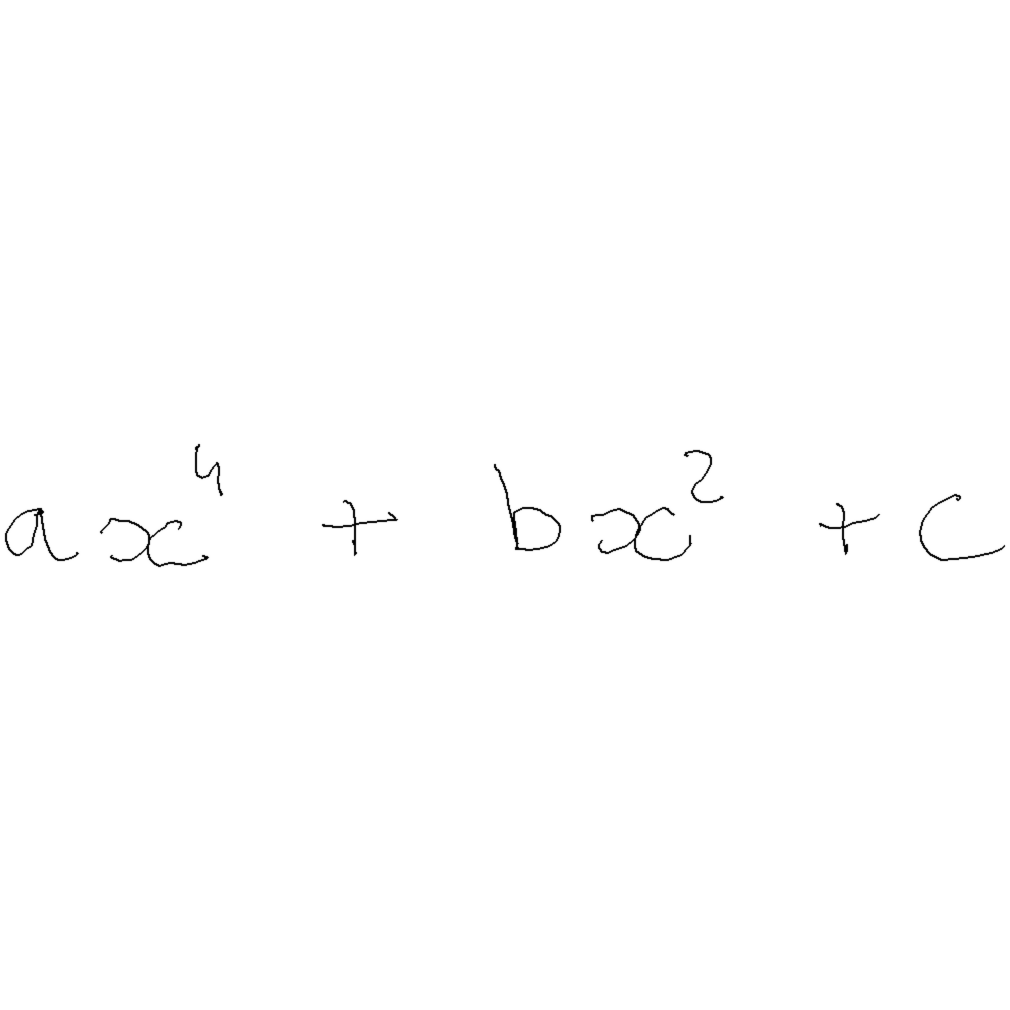 ax⁴ + bx² + c